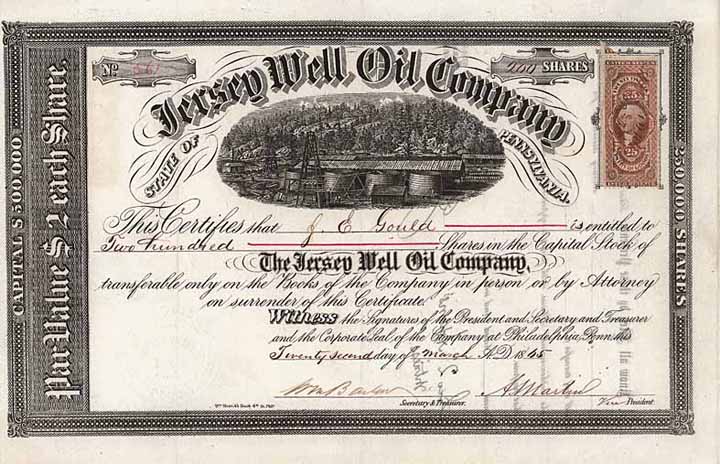 CAPITAL $500,000
Par Value $2 each Share.
250,000 SHARES
No 561
200 SHARES
Jersey Well Oil Company
STATE OF PENNSYLVANIA.
25
25
This Certifies that J. E. Gould is entitled to
Two hundred Shares in the Capital Stock of
The Jersey Well Oil Company,
transferable only on the Books of the Company in person or by Attorney
on surrender of this Certificate.
Witness the Signatures of the President and Secretary and Treasurer
and the Corporate Seal of the Company at Philadelphia, Penn. this
Twenty second day of March A.D. 1865
Secretary & Treasurer.
A. S. Martin
Vice President.